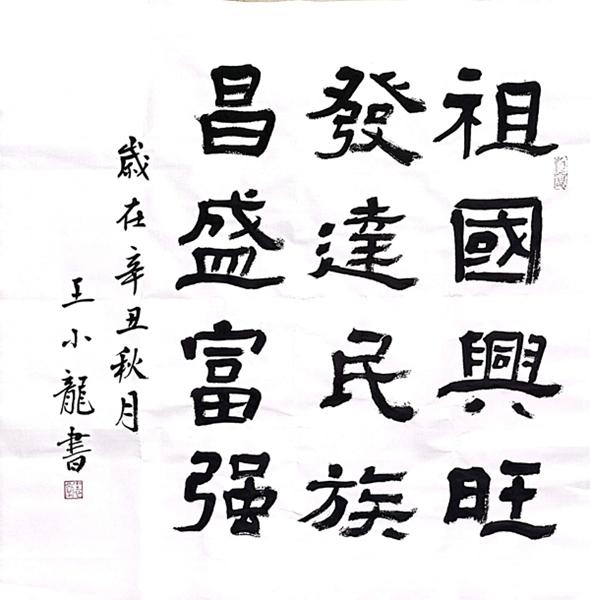 祖國興旺
發達民族
昌盛富强
歳在辛丑秋月
王小龍書